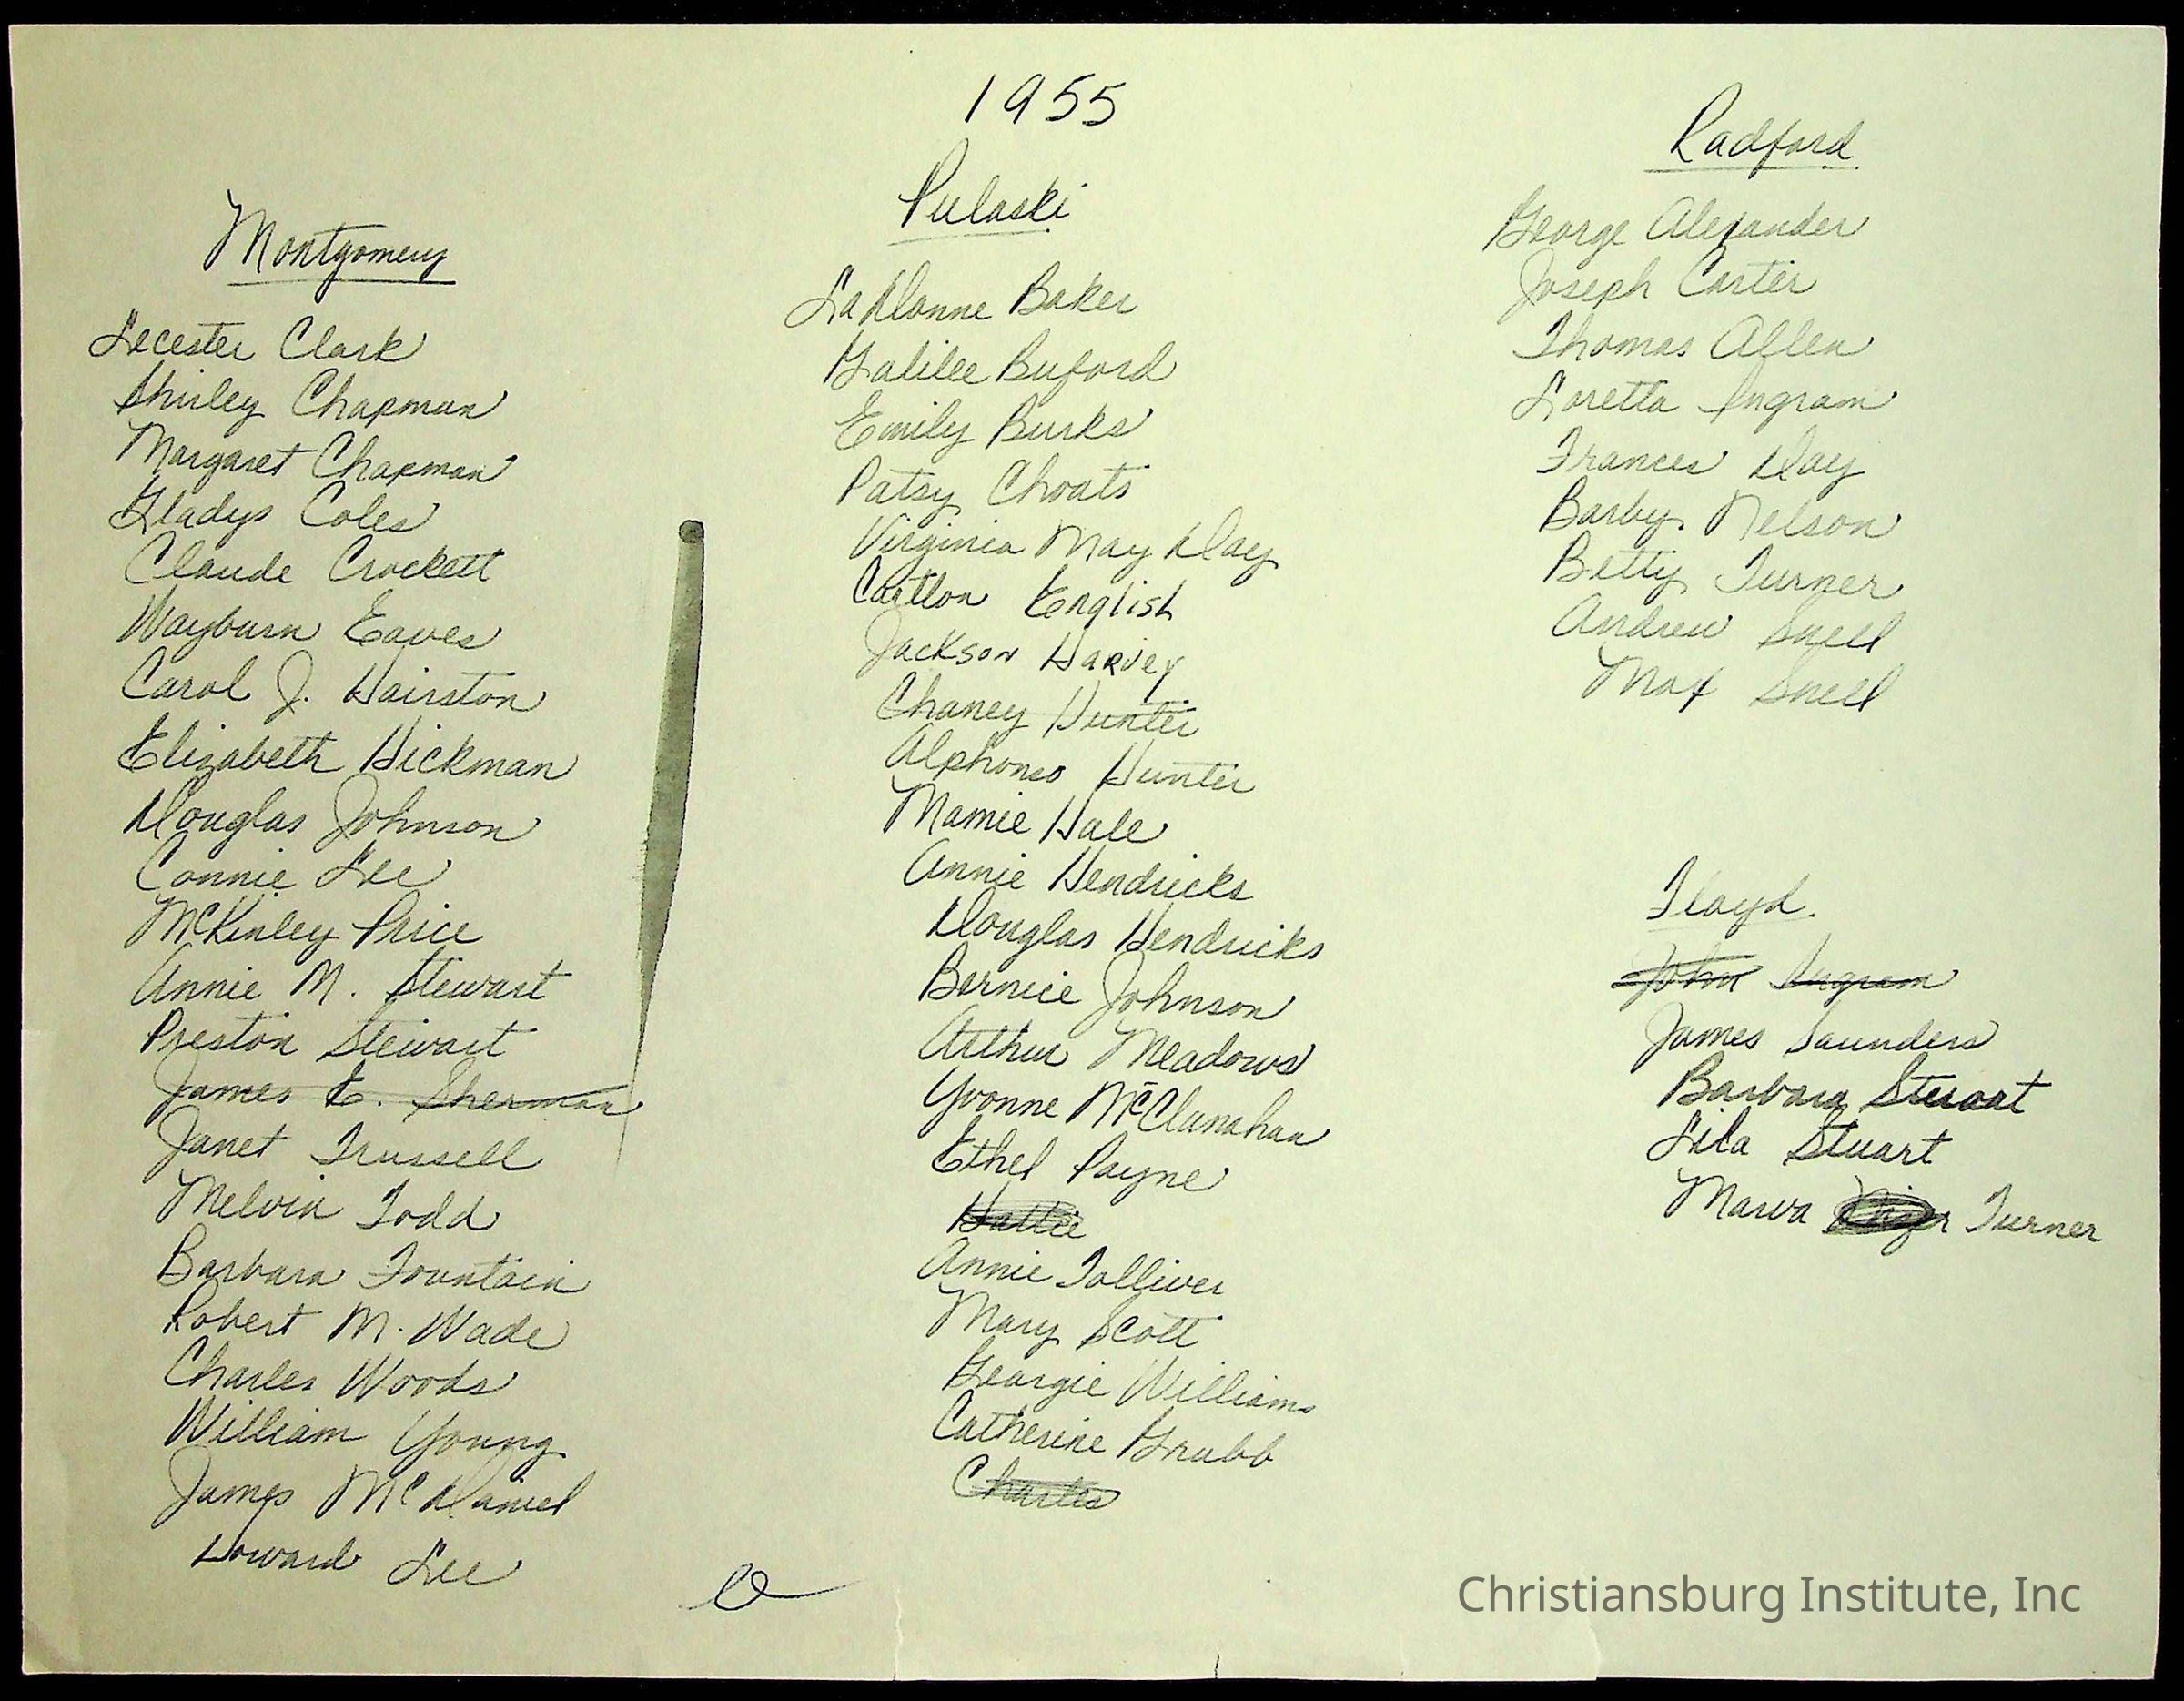 1955
Montgomery
Lecester Clark
Shirley Chapman
Margaret Chapman
Gladys Coles
Claude Crockett
Wayburn Eaves
Carol J. Hairston
Elizabeth Hickman
Douglas Johnson
Connie Lee
McKinley Price
Annie M. Stewart
Preston Stewart
James E. Sherman
Janet Trussell
Melvin Todd
Barbara Fountain
Robert M. Wade
Charles Woods
William Young
James McDaniel
Howard Lee
Pulaski
LaDonne Baker
Galilee Buford
Emily Burks
Patsy Choats
Virginia May Day
Carllon English
Jackson Harvey
Chaney Hunter
Alphonso Hunter
Mamie Hale
Annie Hendricks
Douglas Hendricks
Bernice Johnson
Arthur Meadows
Yvonne McClanahan
Ethel Payne
Hattie
Annie Tolliver
Mary Scott
Georgie Williams
Catherine Grubb
Charles
Radford
George Alexander
Joseph Carter
Thomas Allen
Loretta Ingram
Frances Day
Barby Nelson
Betty Turner
Andrew Snell
Max Snell
Floyd.
John Ingram
James Saunders
Barbara Stuart
Lila Stuart
Marva Turner
Christiansburg Institute, Inc